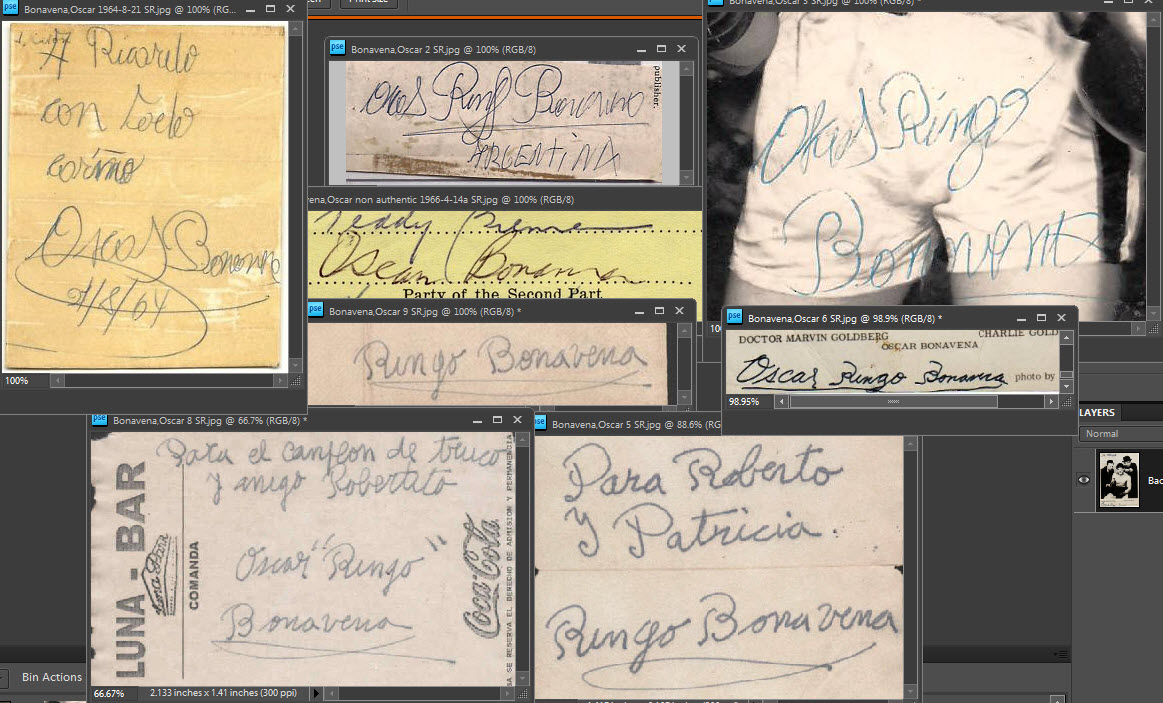 Bonavena,Oscar 1964-8-21 SR.jpg @ 100% (RG...
A Ricardo
con todo
cariño
Oscar Bonavena
21/8/64
100%
Print Size
Bonavena,Oscar 2 SR.jpg @ 100% (RGB/8)
publisher.
Oscar Ringo Bonavena
ARGENTINA
vena,Oscar non authentic 1966-4-14a SR.jpg @ 100% (RGB/8)
Teddy Brenner
Oscar Bonavena
Party of the Second Part
Bonavena,Oscar 9 SR.jpg @ 100% (RGB/8) *
Ringo Bonavena
Bonavena,Oscar 3 SR.jpg @ 100% (RGB/8) *
Oscar Ringo
Bonavena
100
Bonavena,Oscar 6 SR.jpg @ 98.9% (RGB/8) *
DOCTOR MARVIN GOLDBERG
CHARLIE GOLD
OSCAR BONAVENA
Oscar Ringo Bonavena
photo by
98.95%
Bonavena,Oscar 8 SR.jpg @ 66.7% (RGB/8) *
Para el campeon de truco
y amigo Robertito
Oscar "Ringo"
Bonavena
LUNA - BAR
Luna Park
COMANDA
Coca-Cola
SE RESERVA EL DERECHO DE ADMISION Y PERMANENCIA
66.67%
2.133 inches x 1.41 inches (300 ppi)
Bonavena,Oscar 5 SR.jpg @ 88.6% (RG
Para Roberto
Y Patricia
Ringo Bonavena
LAYERS
Normal
Bac
Bin Actions